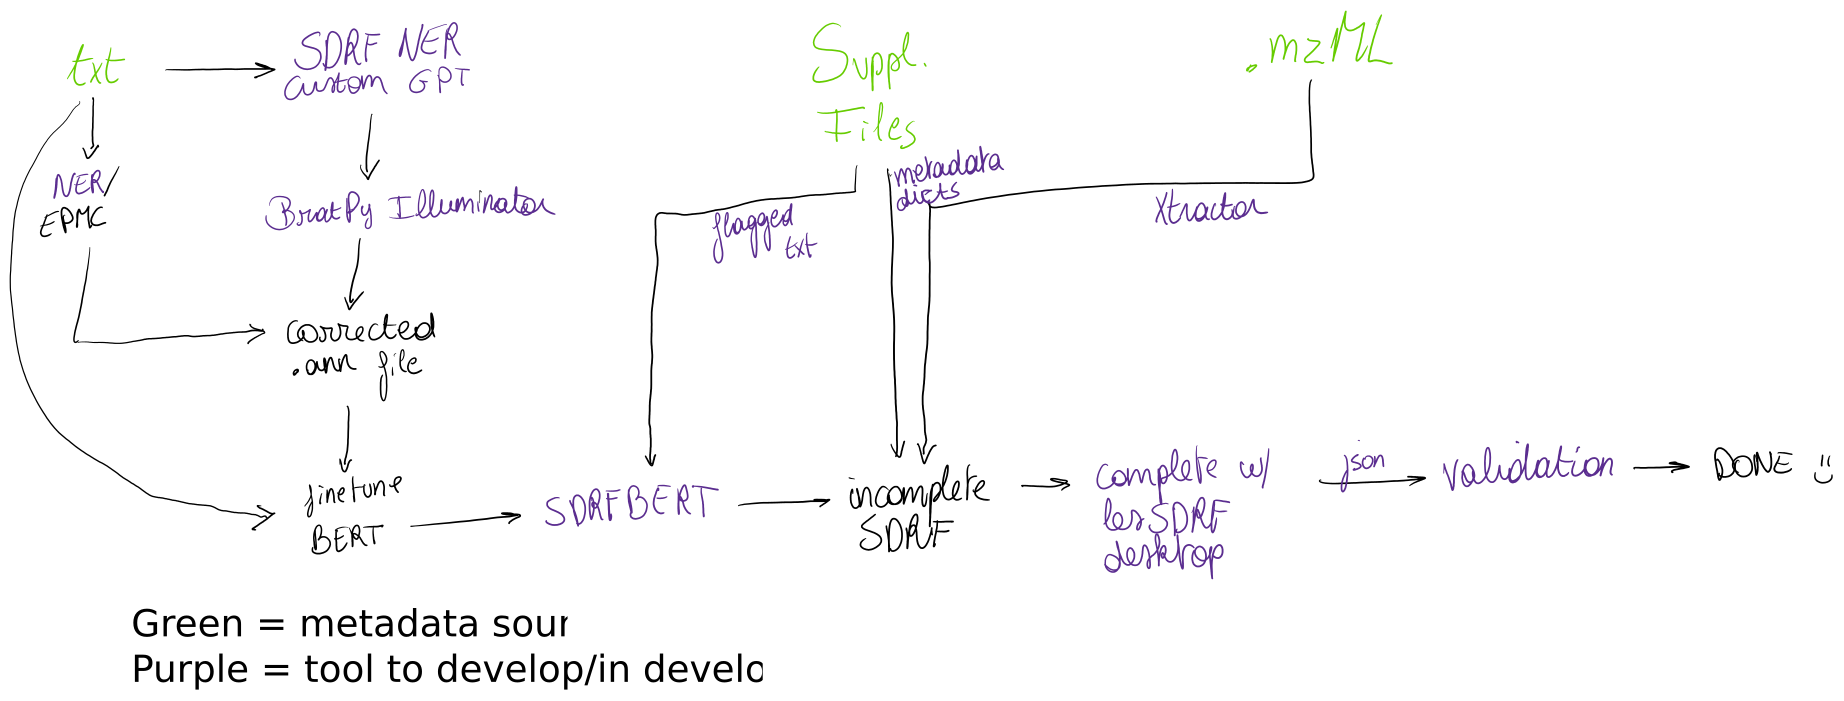 txt
SDRF NER
Custom GPT
Suppl.
Files
.mzML
NER/
EPMC
BratPy Illuminator
metadata
dicts
flagged
txt
Xtractor
corrected
.ann file
finetune
BERT
SDRFBERT
incomplete
SDRF
complete w/
lesSDRF
desktop
json
validation
DONE
Green = metadata sour
Purple = tool to develop/in develo